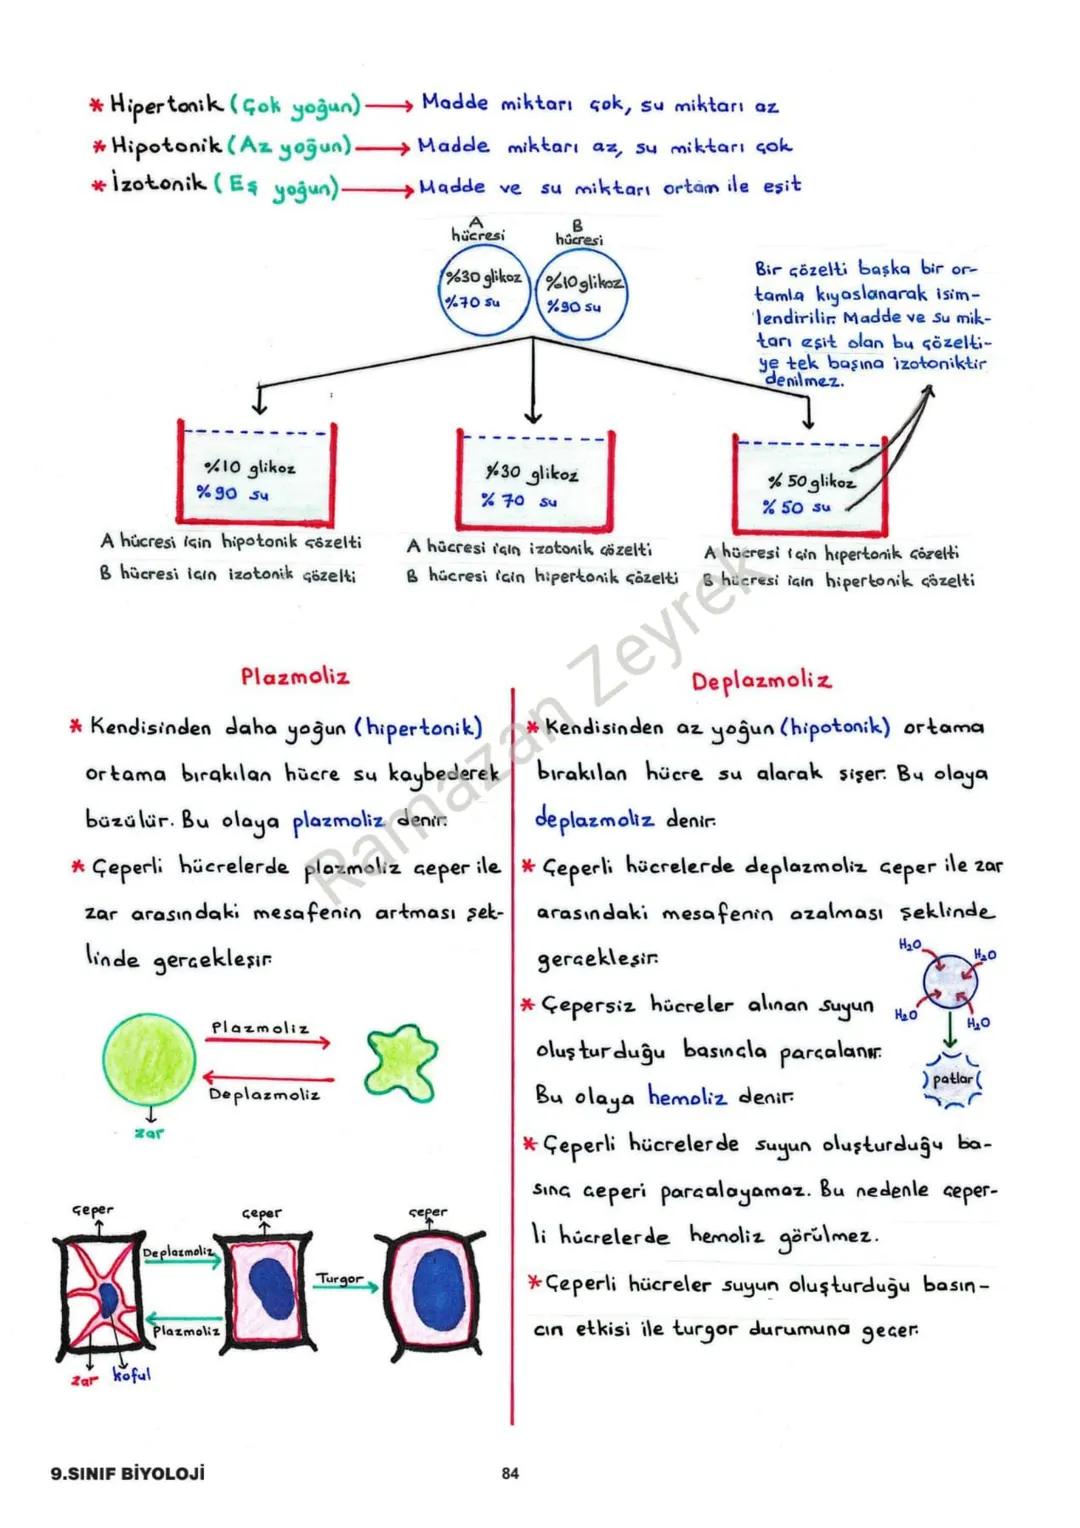 * Hipertonik (Çok yoğun) → Madde miktarı çok, su miktarı az
* Hipotonik (Az yoğun) → Madde miktarı az, su miktarı çok
* İzotonik (Eş yoğun) → Madde ve su miktarı ortam ile eşit
A
hücresi
B
hücresi
%30 glikoz
%70 su
%10 glikoz
%90 su
Bir çözelti başka bir or-
tamla kıyaslanarak isim-
lendirilir. Madde ve su mik-
tarı eşit olan bu çözelti-
ye tek başına izotoniktir
denilmez.
%10 glikoz
%90 su
%30 glikoz
%70 su
%50 glikoz
%50 su
A hücresi için hipotonik çözelti
B hücresi için izotonik çözelti
A hücresi için izotonik çözelti
B hücresi için hipertonik çözelti
A hücresi için hipertonik çözelti
B hücresi için hipertonik çözelti
Plazmoliz
* Kendisinden daha yoğun (hipertonik)
ortama bırakılan hücre su kaybederek
büzülür. Bu olaya plazmoliz denir.
* Çeperli hücrelerde plazmoliz çeper ile
zar arasındaki mesafenin artması şek-
linde gerçekleşir.
Plazmoliz
Deplazmoliz
zar
çeper
çeper
çeper
Deplazmoliz
Plazmoliz
Turgor
zar
koful
Deplazmoliz
* Kendisinden az yoğun (hipotonik) ortama
bırakılan hücre su alarak şişer. Bu olaya
deplazmoliz denir.
* Çeperli hücrelerde deplazmoliz çeper ile zar
arasındaki mesafenin azalması şeklinde
gerçekleşir.
* Çepersiz hücreler alınan suyun
oluşturduğu basınçla parçalanır.
Bu olaya hemoliz denir.
H₂O
H₂O
H₂O
H₂O
patlar
* Çeperli hücrelerde suyun oluşturduğu ba-
sınç çeperi parçalayamaz. Bu nedenle çeper-
li hücrelerde hemoliz görülmez.
* Çeperli hücreler suyun oluşturduğu basın-
cın etkisi ile turgor durumuna geçer.
Ramazan Zeyrek
9.SINIF BİYOLOJİ
84